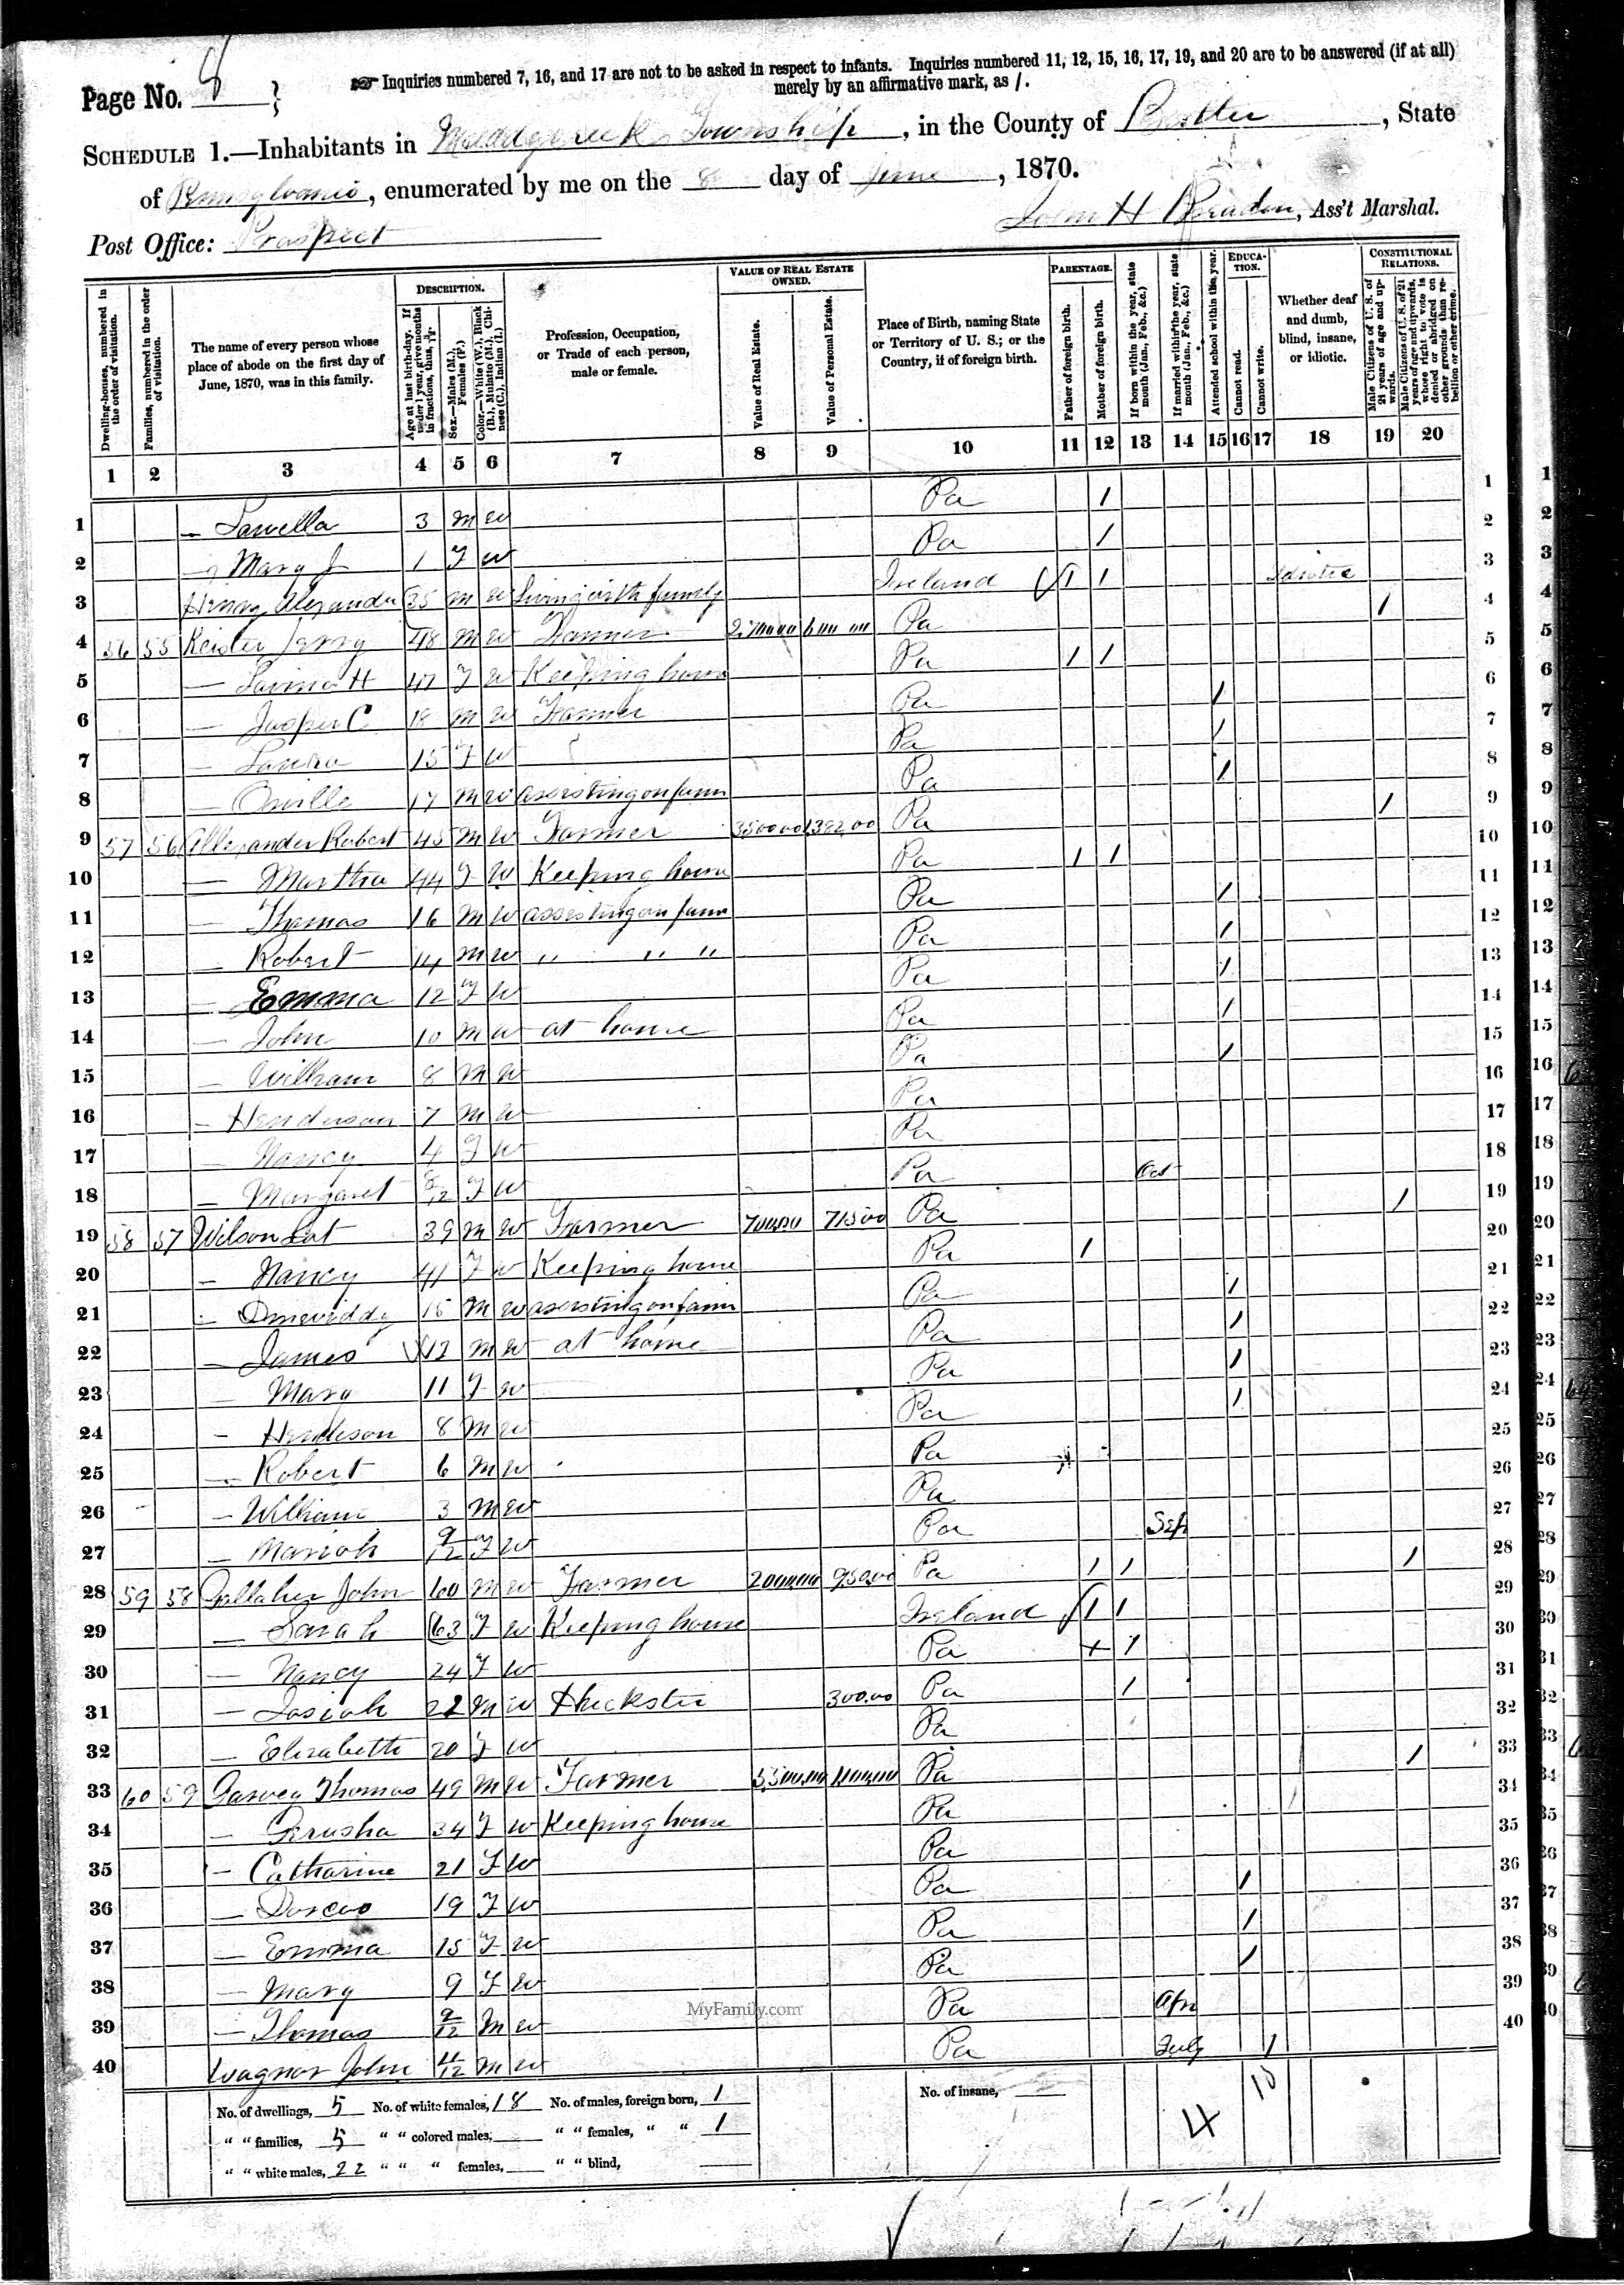 Page No. 8
☞ Inquiries numbered 7, 16, and 17 are not to be asked in respect to infants. Inquiries numbered 11, 12, 15, 16, 17, 19, and 20 are to be answered (if at all)
merely by an affirmative mark, as /.
SCHEDULE 1.—Inhabitants in Muddycreek Township, in the County of Butler, State
of Pennsylvania, enumerated by me on the 8 day of June, 1870.
Post Office: Prospect
John H, Ass't Marshal.
Dwelling-houses, numbered in the order of visitation.
Families, numbered in the order of visitation.
The name of every person whose place of abode on the first day of June, 1870, was in this family.
DESCRIPTION.
Age at last birth-day. If under 1 year, give months in fractions, thus,
Sex.—Males (M.), Females (F.)
Color.—White (W.), Black (B.), Mulatto (M.), Chinese (C.), Indian (I.)
Profession, Occupation, or Trade of each person, male or female.
VALUE OF REAL ESTATE OWNED.
Value of Real Estate.
Value of Personal Estate.
Place of Birth, naming State or Territory of U. S.; or the Country, if of foreign birth.
PARENTAGE.
Father of foreign birth.
Mother of foreign birth.
If born within the year, state month (Jan., Feb., &c.)
If married within the year, state month (Jan., Feb., &c.)
Attended school within the year.
EDUCATION.
Cannot read.
Cannot write.
Whether deaf and dumb, blind, insane, or idiotic.
CONSTITUTIONAL RELATIONS.
Male Citizens of U. S. of 21 years of age and upwards.
Male Citizens of U. S. of 21 years of age and upwards, whose right to vote is denied or abridged on other grounds than rebellion or other crime.
1 2 3 4 5 6 7 8 9 10 11 12 13 14 15 16 17 18 19 20
1 — 3 M W Pa / 1
2 — Mary J 1 F W Pa / 2
3 Henry Alexander 35 M W Living with family Ireland / / Idiotic 3
4 56 55 Keister 48 M W Farmer Pa / 4
5 — H 47 F W Keeping house Pa / / 5
6 — Jasper C 18 M W Farmer Pa / 6
7 — 15 F W Pa / 7
8 — Orville 17 M W assisting on farm Pa / 8
9 57 56 Allexander Robert 45 M W Farmer Pa / 9
10 — Martha 44 F W Keeping house Pa / / 10
11 — Thomas 16 M W assisting on farm Pa / 11
12 — Robert 14 M W " " " Pa / 12
13 — Emma 12 F W Pa / 13
14 — John 10 M W at home Pa / 14
15 — William 8 M W Pa / 15
16 — Henderson 7 M W Pa 16
17 — Nancy 4 F W Pa 17
18 — Margaret 8/12 F W Pa Oct 18
19 58 57 Wilson 39 M W Farmer Pa / 19
20 — Nancy 41 F W Keeping house Pa / 20
21 — 15 M W assisting on farm Pa / 21
22 — James 12 M W at home Pa / 22
23 — Mary 11 F W Pa / 23
24 — Henderson 8 M W Pa / 24
25 — Robert 6 M W Pa 25
26 — William 3 M W Pa 26
27 — Mariah 9/12 F W Pa Sep 27
28 59 58 Gallaher John 60 M W Farmer Pa / / / 28
29 — Sarah 63 F W Keeping house Ireland / / 29
30 — Nancy 24 F W Pa + / 30
31 — Josiah 22 M W Huckster 300.00 Pa / 31
32 — Elizabeth 20 F W Pa 32
33 60 59 Garvey Thomas 49 M W Farmer Pa / 33
34 — Jerusha 34 F W Keeping house Pa 34
35 — Catharine 21 F W Pa 35
36 — Dorcas 19 F W Pa / 36
37 — Emma 15 F W Pa / 37
38 — Mary 9 F W Pa / 38
39 — Thomas 2/12 M W Pa Apr 39
40 Wagnor John 11/12 M W Pa July / 40
MyFamily.com
No. of dwellings, 5 No. of white females, 18 No. of males, foreign born, 1 No. of insane,
" " families, 5 " " colored males, " " females, " " 1
" " white males, 22 " " " females, " " blind,
4 10